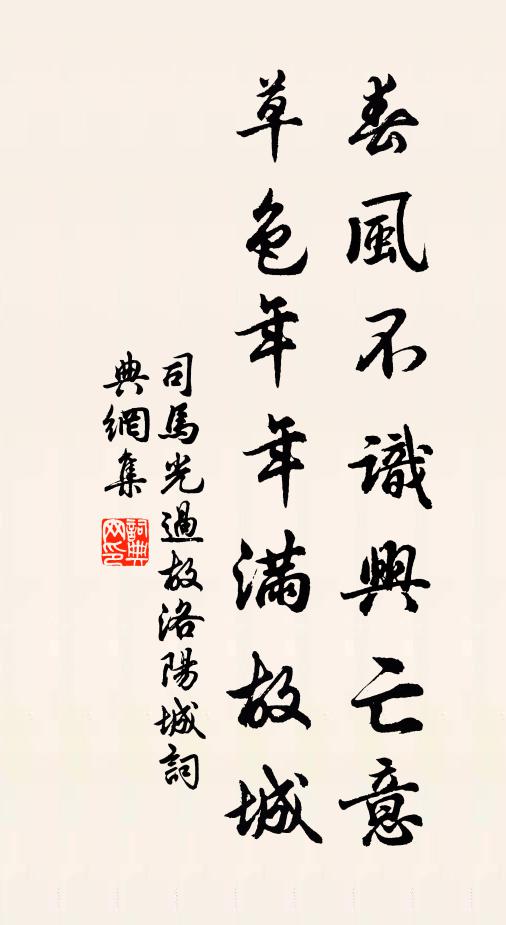 春風不識興亡意
草色年年滿故城
司馬光過故洛陽城詞
典網集
詞典網印